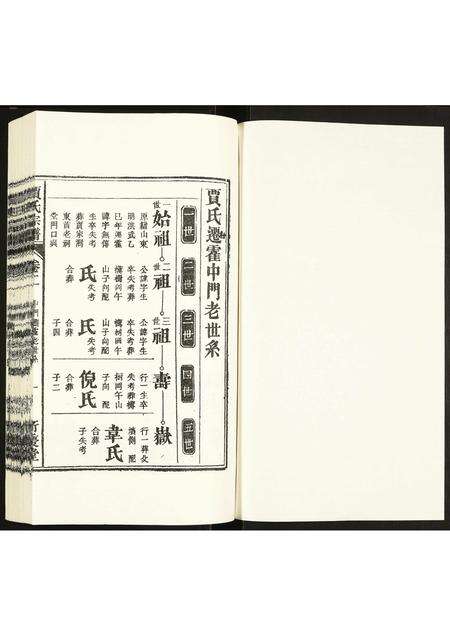 賈氏遷霍中門老世系
一世
二世
三世
四世
五世
一世
始祖
原籍山東
明洪武乙
巳年遷霍
諱字無傳
生卒失考
葬賈家洞
東首老祠
堂門口
二世
祖
公諱字生
卒失考葬
午山子向配
氏失考
合葬
三世
祖
公諱字生
卒失考葬
午山子向配
氏失考
合葬
子四
壽
行一生卒
失考葬
午山子向配
倪氏
合葬
子二
嶽
行一葬父
墳側配
韋氏
合葬
子失考
賈氏宗譜
卷